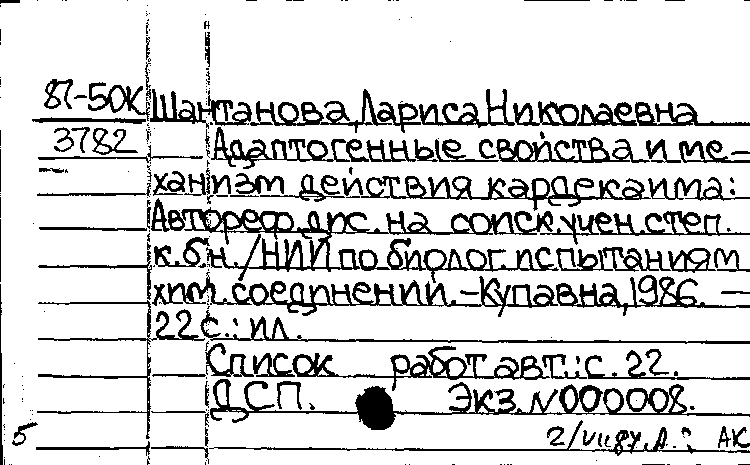 87-50К Шантанова, Лариса Николаевна
3782 Адаптогенные свойства и ме-
ханизм действия кардекаима:
Автореф. дис. на соиск. учен. степ.
к.б.н. / НИИ по биолог. испытаниям
хим. соединений. - Купавна, 1986. -
22 с.: ил.
Список работ авт.: с. 22.
ДСП. Экз. N 000008.
5 АК